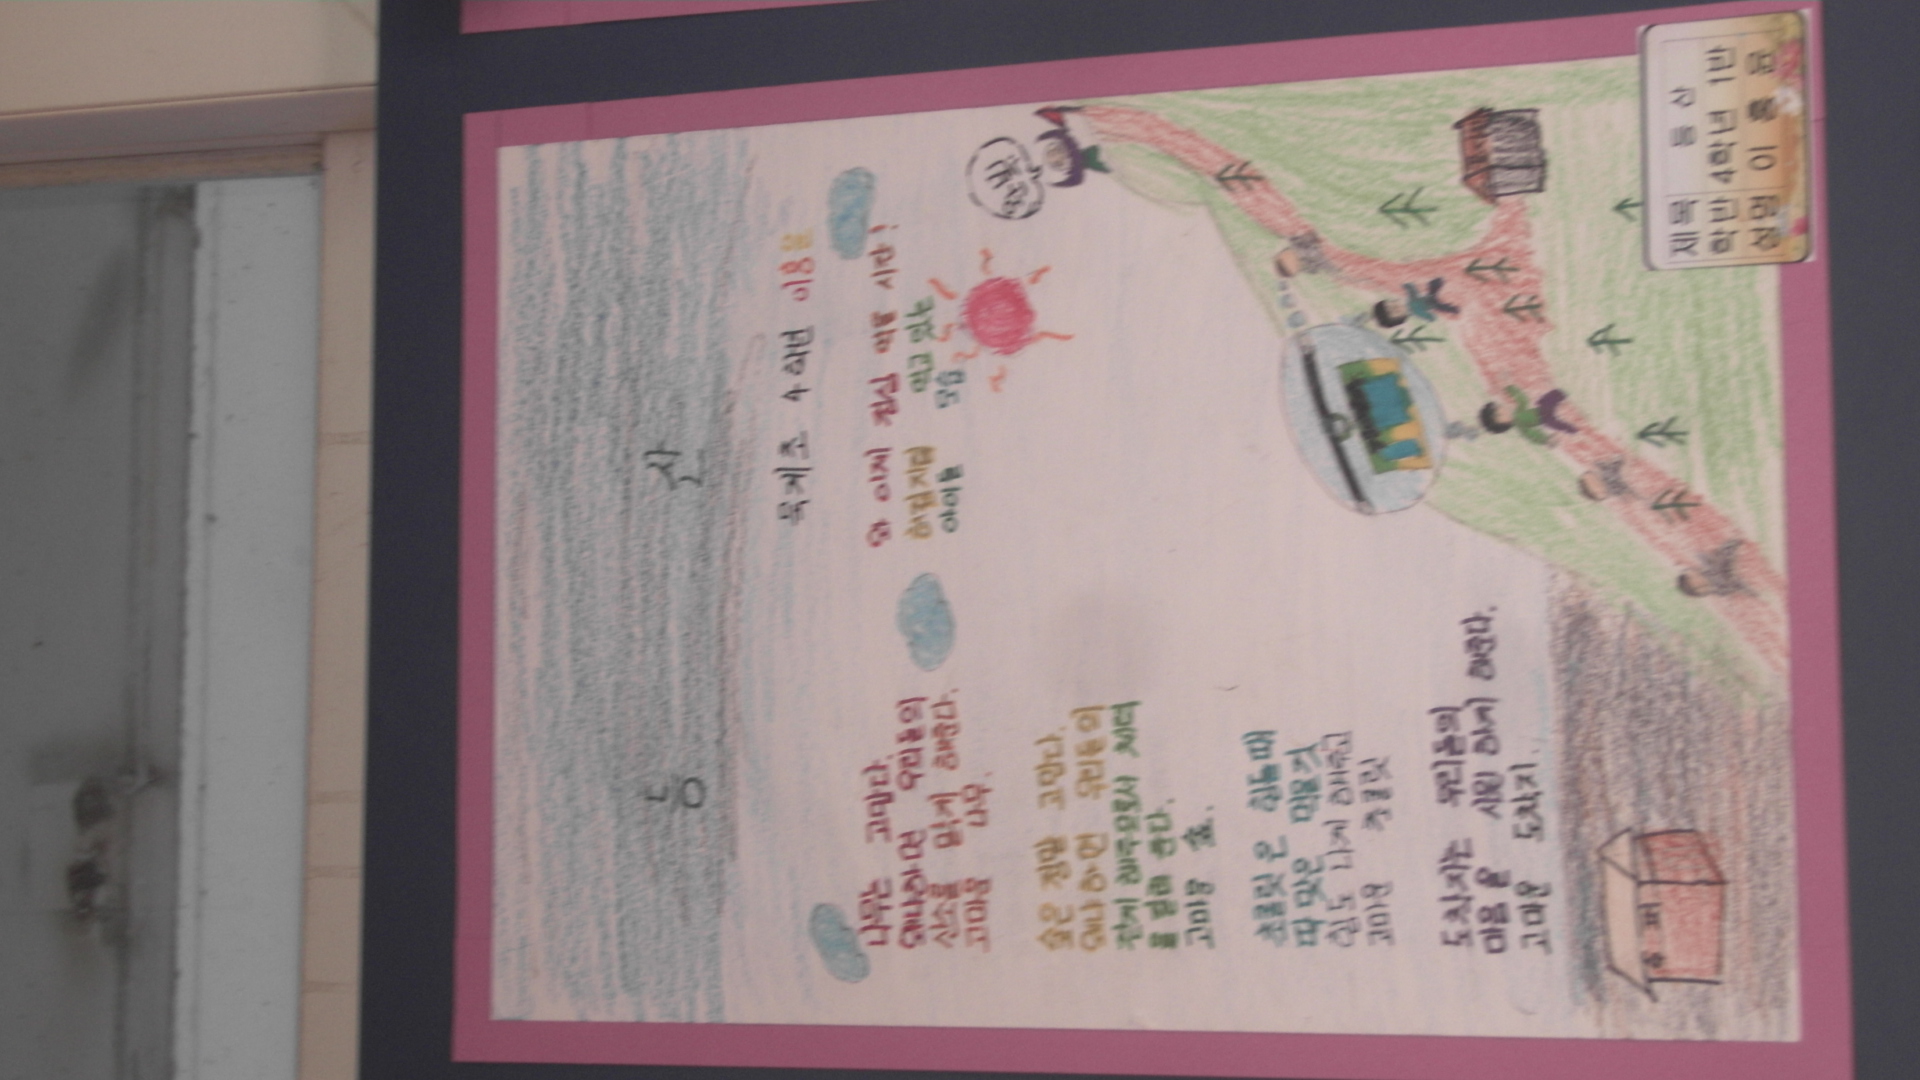 등 산
묵계초 4학년 이용운
나무는 고맙다.
왜냐하면 우리들의
산소를 맑게 해준다.
고마운 나무.
숲은 정말 고맙다.
왜냐하면 우리들의
쟌게 해주므로서 더위
를 한다.
고마운 숲.
초콜릿은 힘들때
딱 맞은 먹을것
힘도 나게 해주고
고마운 초콜릿
도착지는 우리들의
마음을 시원하게 해준다.
고마운 도착지.
와 이제 점심 먹을 시간!
허겁지겁 먹고있는
아이들 모습
슈퍼
제목 등 산
학반 4학년 1반
성명 이 용 운